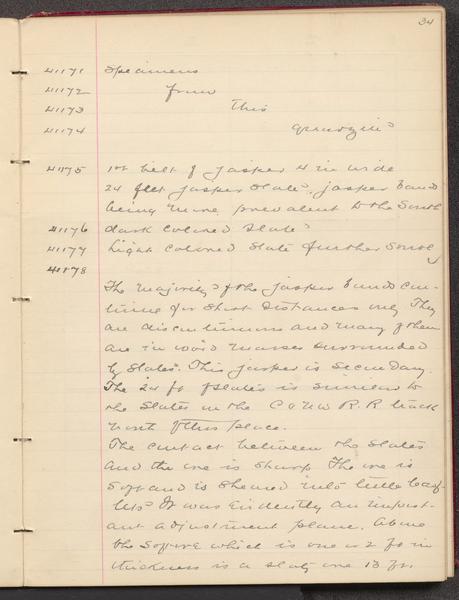 34
41171 Specimens
41172 from
41173 this
41174
41175 1st belt of Jasper 4 in wide
24 feet Jasper slate. Jasper band
being more prevalent to the South
41176 dark colored slate
41177 Light colored slate further South
41178
The majority of the jasper bands con-
tinue for short distances only They
are discontinuous and many of them
are in ovoid masses surrounded
by slates. This jasper is secondary.
The 24 ft of slates is similar to
the slates on the C & N W R.R. track
north of this place.
The contact between the slates
and the ore is sharp The ore is
soft and is sheared into little leaf
lets It was evidently an import-
ant adjustment plane. Above
the soft ore which is one or 2 ft in
thickness is a slaty ore 13 ft.